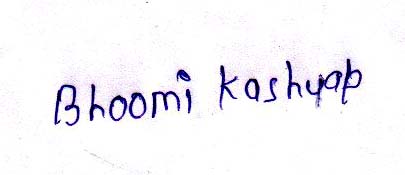 Bhoomi Kashyap